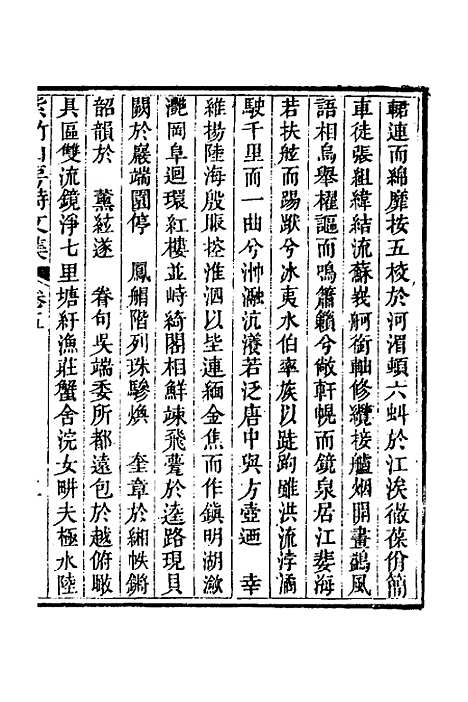 轞連而綿靡按五校於河湄頓六虯於江涘徹葆佾簡
車徒張組緯結流蘇峩舸銜舳修纜接艫烟開畫鷁風
語相烏舉櫂謳而鳴簫籟兮敞軒幌而鏡泉居江婓海
若扶舷而踢踧兮冰夷水伯率族以踕跔雖洪流浡潏
駛千里而一曲兮冲瀜沆瀁若泛唐中與方壺迺　幸
維揚陸海殷賑控淮泗以坒連緬金焦而作鎭明湖瀲
灔岡阜迴環紅樓並峙綺閣相鮮竦飛甍於逵路現貝
闕於巖端園停　鳳艒階列珠驂煥　奎章於緗帙鏘
韶韻於　薰絃遂　眷句吳端委所都遠包於越俯瞰
具區雙流鏡淨七里塘紆漁莊蟹舍浣女畊夫極水陸
紫竹山房詩文集　卷五